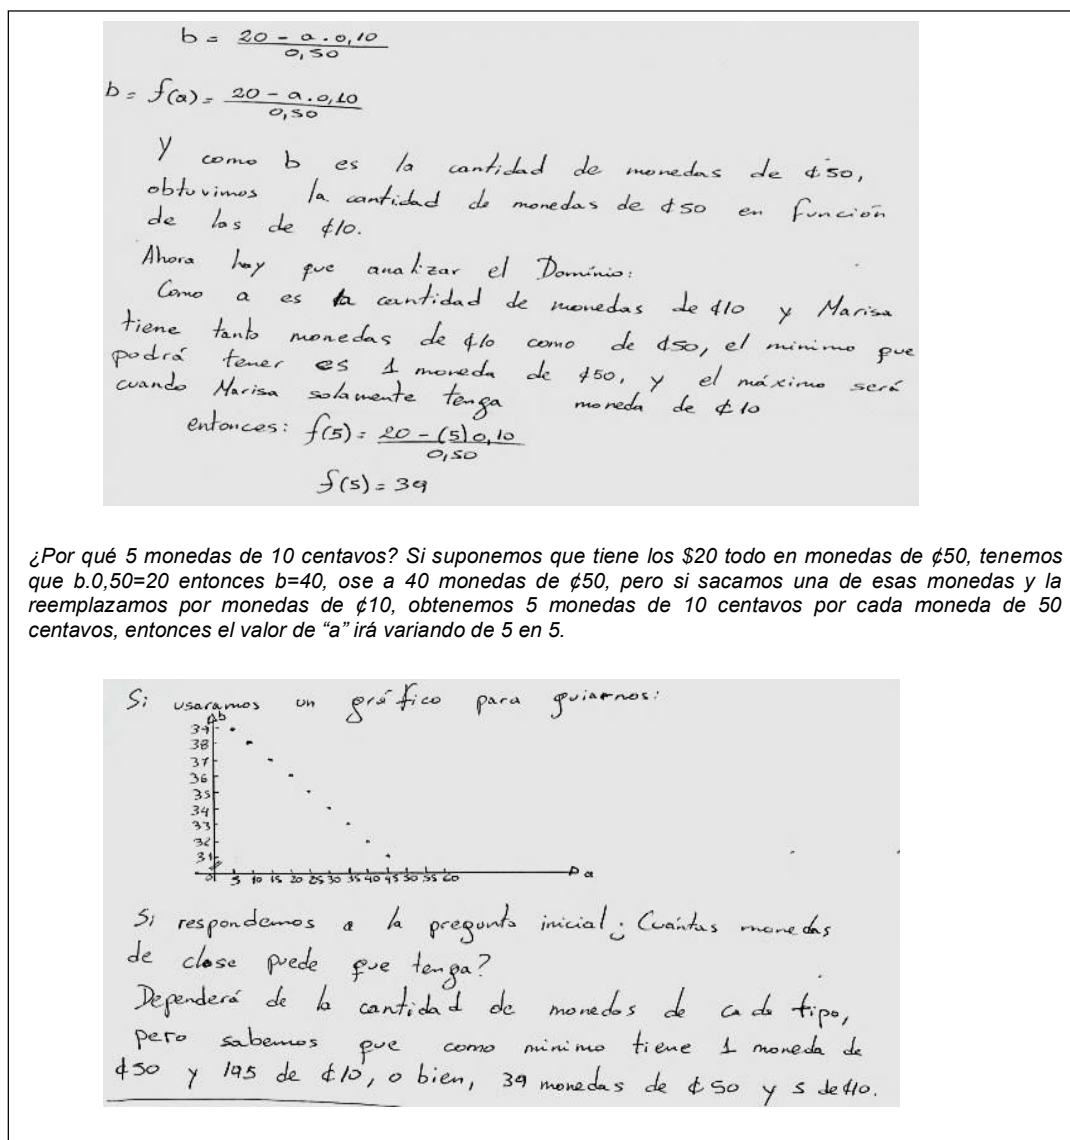 b = 20 - a . 0,10 / 0,50
b = f(a) = 20 - a . 0,10 / 0,50
Y como b es la cantidad de monedas de ¢50,
obtuvimos la cantidad de monedas de ¢50 en función
de las de ¢10.
Ahora hay que analizar el Dominio:
Como a es la cantidad de monedas de ¢10 y Marisa
tiene tanto monedas de ¢10 como de ¢50, el minimo que
podrá tener es 1 moneda de ¢50, y el máximo será
cuando Marisa solamente tenga moneda de ¢10
entonces: f(5) = 20 - (5) 0,10 / 0,50
f(5) = 39
¿Por qué 5 monedas de 10 centavos? Si suponemos que tiene los $20 todo en monedas de ¢50, tenemos
que b.0,50=20 entonces b=40, ose a 40 monedas de ¢50, pero si sacamos una de esas monedas y la
reemplazamos por monedas de ¢10, obtenemos 5 monedas de 10 centavos por cada moneda de 50
centavos, entonces el valor de “a” irá variando de 5 en 5.
Si usaramos un gráfico para guiarnos:
b
39
38
37
36
35
34
33
32
31
0 5 10 15 20 25 30 35 40 45 50 55 60 a
Si respondemos a la pregunta inicial ¿Cuántas monedas
de clase puede que tenga?
Dependerá de la cantidad de monedas de cada tipo,
pero sabemos que como minimo tiene 1 moneda de
¢50 y 195 de ¢10, o bien, 39 monedas de ¢50 y 5 de ¢10.